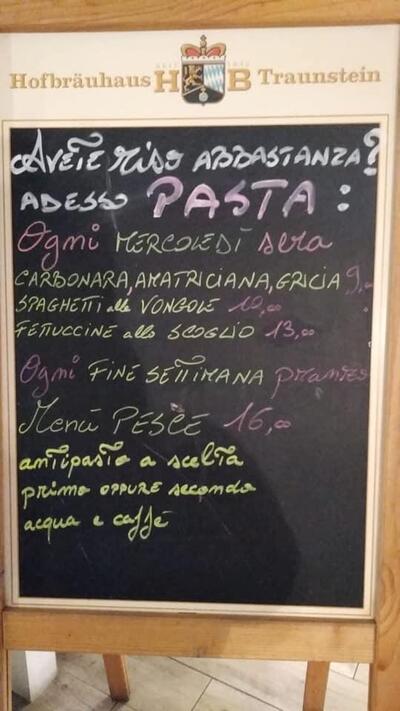 Hofbräuhaus HB Traunstein
AVETE riso ABBASTANZA?
ADESSO PASTA:
Ogni MERCOLEDÌ sera
CARBONARA, AMATRICIANA, GRICIA 9,00
SPAGHETTI alle VONGOLE 12,00
FETUCCINE allo SCOGLIO 13,00
Ogni FINE SETTIMANA pranzo
Menù PESCE 16,00
antipasto a scelta
primo OPPURE secondo
acqua e caffè